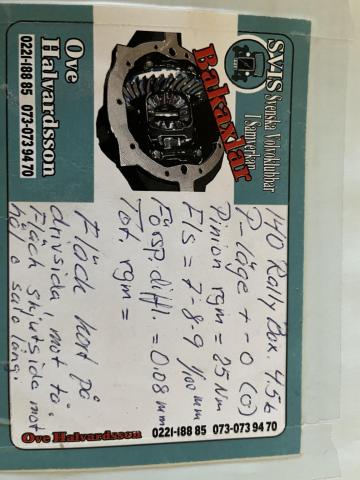 SVIS Svenska Volvoklubbar
I Samverkan
Bakaxlar
Ove
Halvardsson
0221-188 85 073-073 94 70
140 Rally Box 4.56
P-läge + - 0 (0)
Pinion rgm = 25 Nm
F/s = 7-8-9 1/100 mm
Försp. diffl. = 0.08 mm
Tot. rgm =
Fläck kort på
drivsida mot tå.
Fläck skjutsida mot
häl o salo lång.
Ove Halvardsson 0221-188 85 073-073 94 70